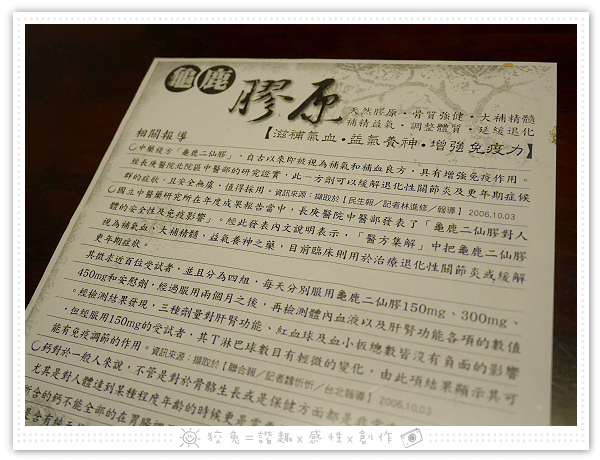 龜鹿
膠原
天然膠原·骨質強健·大補精髓
補精益氣·調整體質·延緩退化
【滋補氣血·益氣養神·增強免疫力】
相關報導
○中藥複方「龜鹿二仙膠」，自古以來即被視為補氣和補血良方，具有增強免疫作用。
經長庚醫院北院區中醫部的研究證實，此一方劑可以緩解退化性關節炎及更年期症候
群的症狀，且安全無虞，值得採用。資訊來源：擷取於【民生報／記者林進修／報導】2006.10.03
○國立中醫藥研究所在年度成果報告當中，長庚醫院中醫部發表了「龜鹿二仙膠對人
體的安全性及免疫影響」。經此發表內文說明表示，「醫方集解」中把龜鹿二仙膠
視為補氣血、大補精髓、益氣養神之藥，目前臨床則用於治療退化性關節炎或緩解
更年期症狀。
其徵求近百位受試者，並且分為四組，每天分別服用龜鹿二仙膠150mg、300mg、
450mg和安慰劑，經過服用兩個月之後，再檢測體內血液以及肝腎功能各項的數值
。經檢測結果發現，三種劑量對肝腎功能、紅血球及血小板總數皆沒有負面的影響
，但經服用150mg的受試者，其T淋巴球數目有輕微的變化，由此項結果顯示其可
能有免疫調節的作用。資訊來源：擷取於【聯合報／記者魏忻忻／台北報導】2006.10.03
○鈣對於一般人來說，不管是對於骨骼生長或是保健方面都是
尤其是對人體達到某種程度年齡的時候更
所含的鈣不能全部的在胃腸
狡兔=諧趣x感性x創作